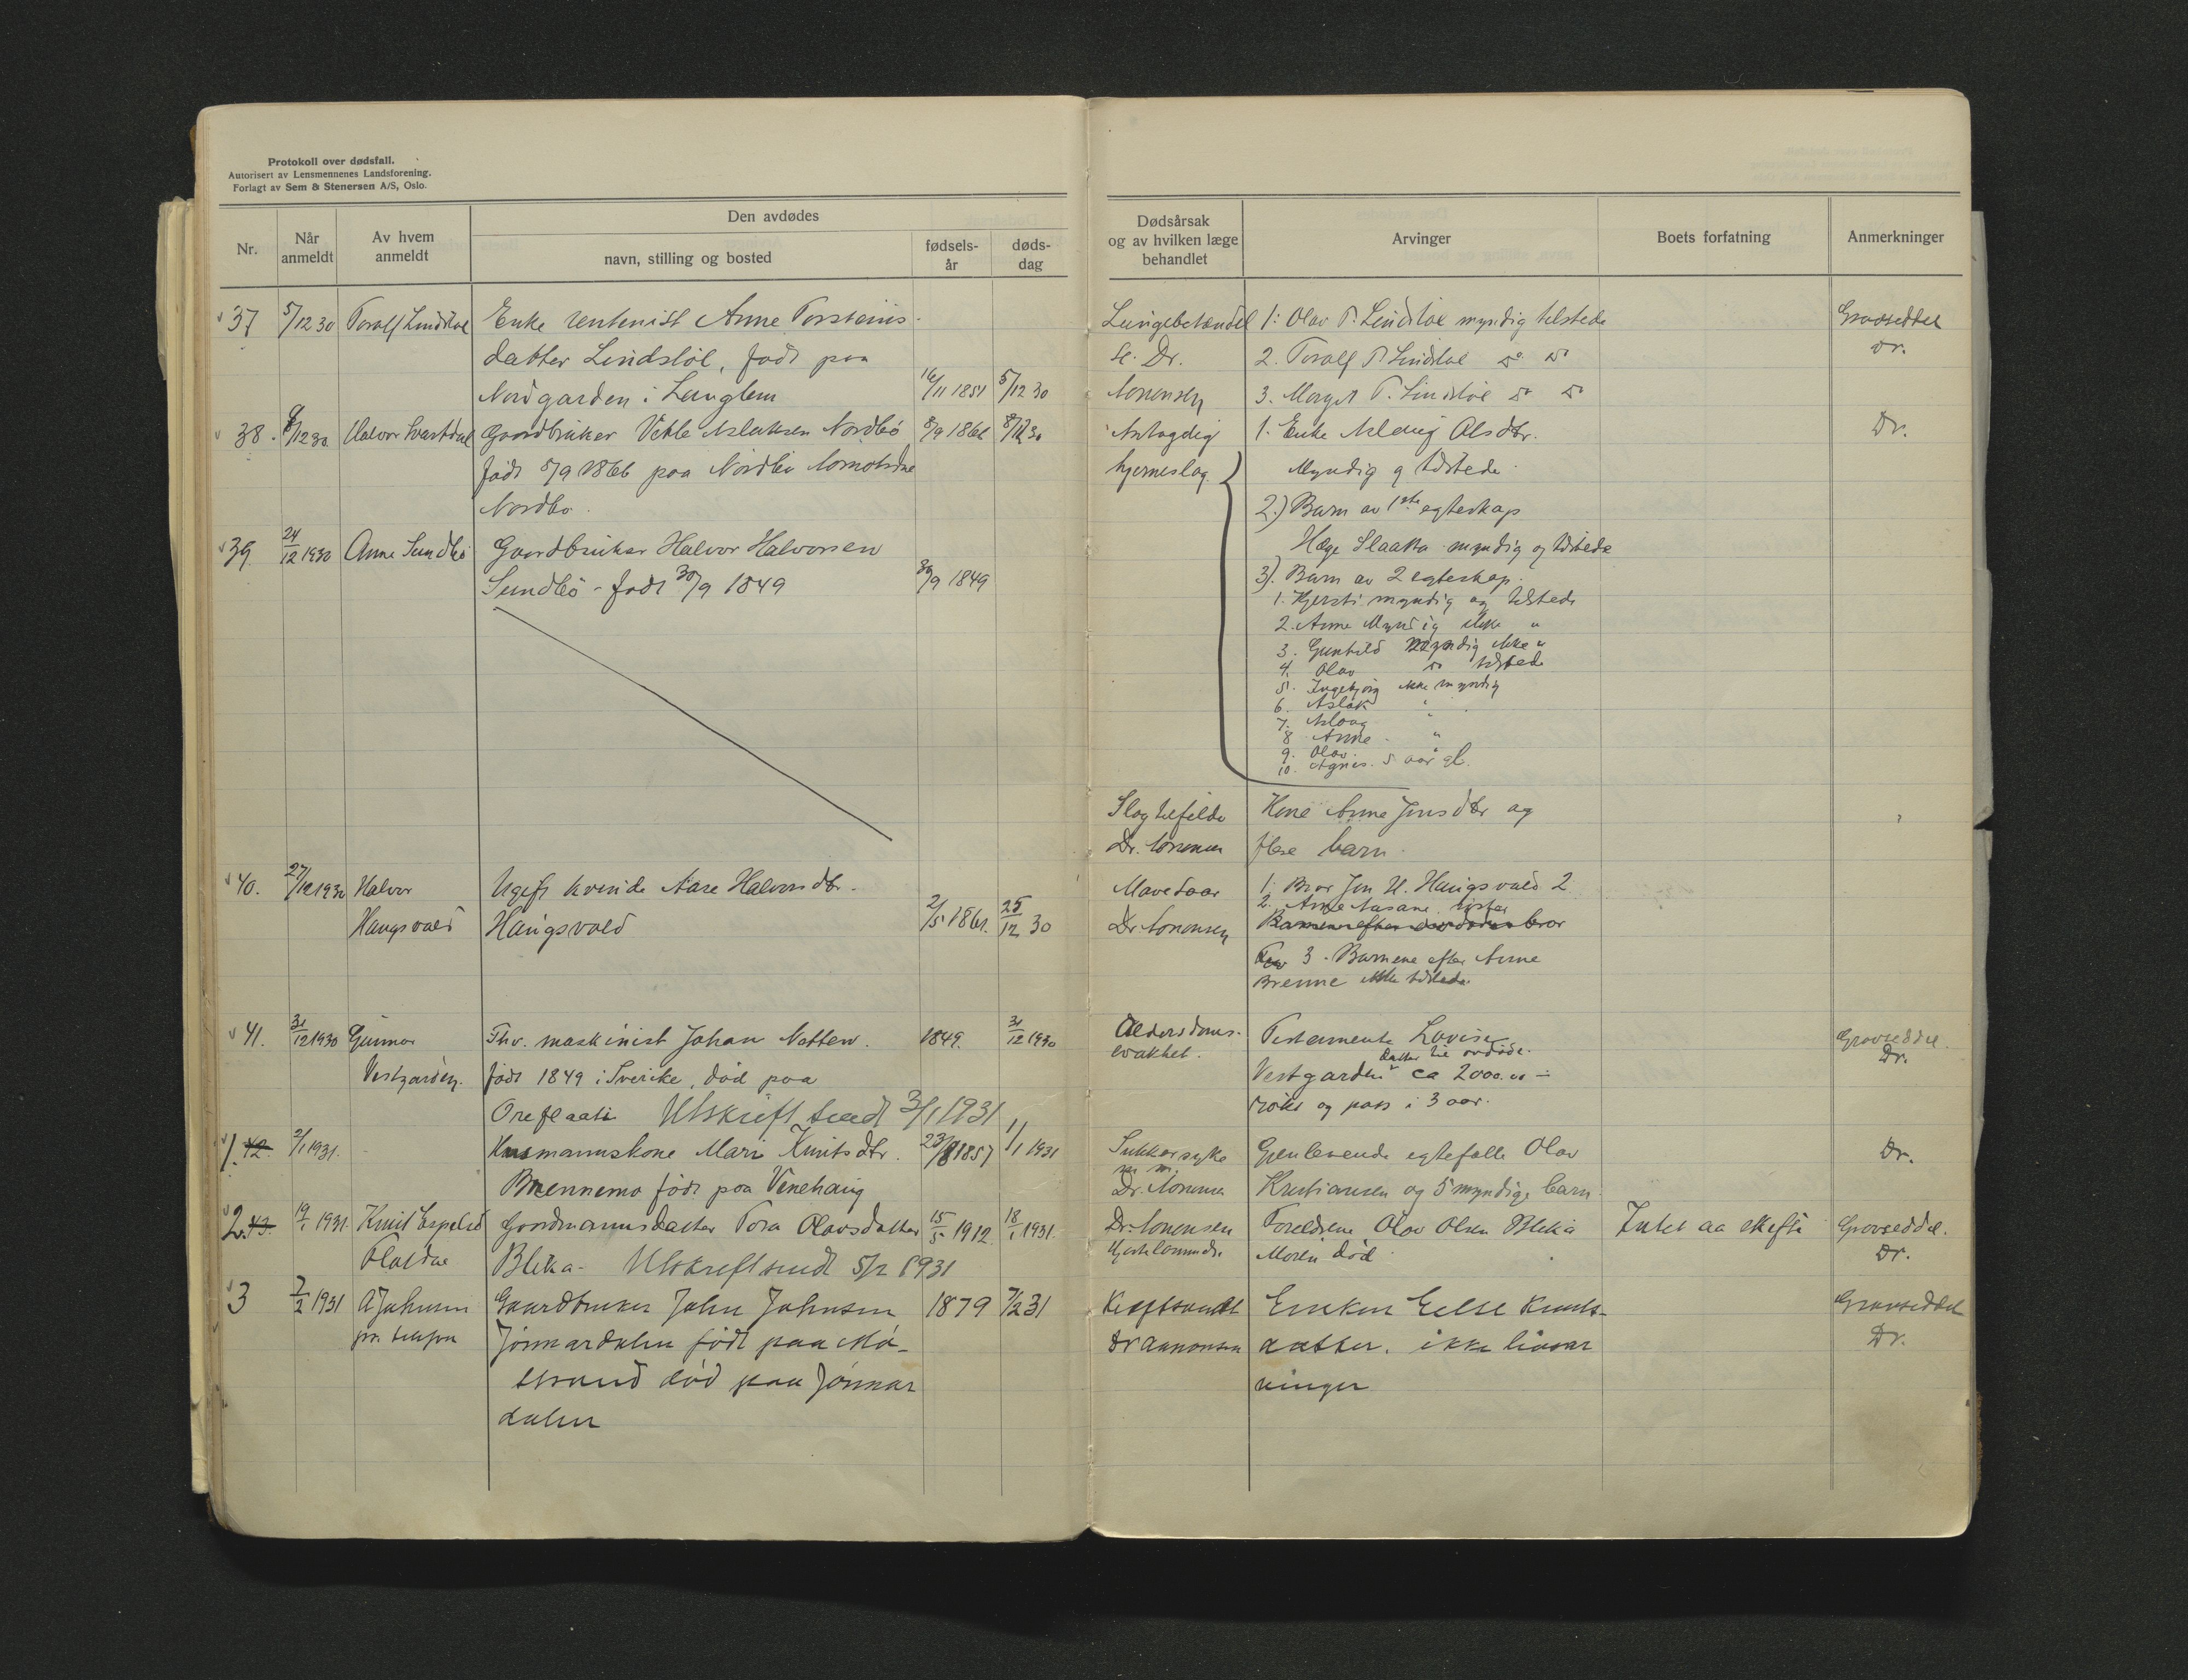 Protokoll over dødsfall.
Autorisert av Lensmennenes Landsforening.
Forlagt av Sem & Stenersen A/S, Oslo.
Nr.
Når anmeldt
Av hvem anmeldt
Den avdødes
navn, stilling og bosted
fødsels-år
døds-dag
Dødsårsak og av hvilken læge behandlet
Arvinger
Boets forfatning
Anmerkninger
37 5/12 30 Toralf Lindstøl Enke rentenist Anne Torsteins
datter Lindstøl, født paa
Nordgarden i 16/11 1851 5/12 30
Lungebetændel
se. Dr.
Sørensen
1. Olav T. Lindstøl myndig tilstede
2. Toralf T. Lindstøl do do
3. Margit T. Lindstøl do do
Gravseddel
Dr.
38. 8/12 30 Halvor Svartdal Gaardbruker Vetle Aslaksen Nordbø 8/9 1866 8/12 30
født 8/9 1866 paa Nordbø
Nordbø.
Antagelig
hjerneslag.
1. Enke Aslaug Olsdtr.
Myndig og tilstede.
2.) Barn av 1ste egteskap
Hæge Slaatta myndig og tilstede
3). Barn av 2 egteskap.
1. Kjersti myndig og tilstede
2. Anne Myndig ikke "
3. Gunhild Myndig ikke "
4. Olav do tilstede
5. Ingebjørg ikke myndig
6. Aslak "
7. Aslaug "
8. Anne "
9. Olav.
10. Agnes. 5 aar gl.
Dr.
39. 24/12 1930 Anne Sundbø Gaardbruker Halvor Halvorsen
Sundbø - født 30/9 1849 30/9 1849
Slagtilfelde
Dr. Sørensen
Kone Anne Jensdtr og
flere barn.
40. 27/12 1930 Halvor Haugsvald Ugift kvinde Aase Halvorsdtr.
Haugsvald 2/5 1861. 25/12 30
Mavesaar
Dr. Sørensen
1. Bror Jon H. Haugsvald 2
2. Anne Aasane søster
Barnene efter avdødes bror
3. Barnene efter Anne
Brenne ikke tilstede
41. 31/12 1930 Gunnar Vestgarden. Fhv. maskinist Johan Netten. 1849. 31/12 1930
født 1849 i Sverike, død paa
Oreflaati Utskrift sendt 3/1 1931
Alderdoms-
svakhet.
Testamente Lovise
datter til avdøde.
Vestgarden ca 2000.00 -
røkt og pass i 3 aar.
Gravseddel.
Dr.
1. 42. 2/1 1931. Husmannskone Mari Knutsdtr. 23/8 1857 1/1 1931
Brennemo født paa Vinehaug
Sukkersyke
m. m.
Dr. Sørensen
Gjenlevende egtefalle Olav
Kristiansen og 5 myndige barn.
Dr.
2. 43. 19/1 1931. Knut Espelid Flatdal Gaardmannsdatter Tora Olavsdatter 15/5 1912. 18/1 1931.
Bleka - Utskrift sendt 5/2 1931
Dr. Sørensen
Foreldrene Olav Olsen Bleka
Moren død
Intet aa skifte
Gravseddel.
Dr.
3 7/2 1931 A Johnsen pr. telefon Gaardbruker John Johnsen 1879 7/2 31
Jønnardalen født paa Må-
strand død paa Jønnar
dalen
Kræftsvulst
Dr Aanonsen
Enken Eelse Knuts-
datter. ikke livsar
vinger
Gravseddel
Dr.